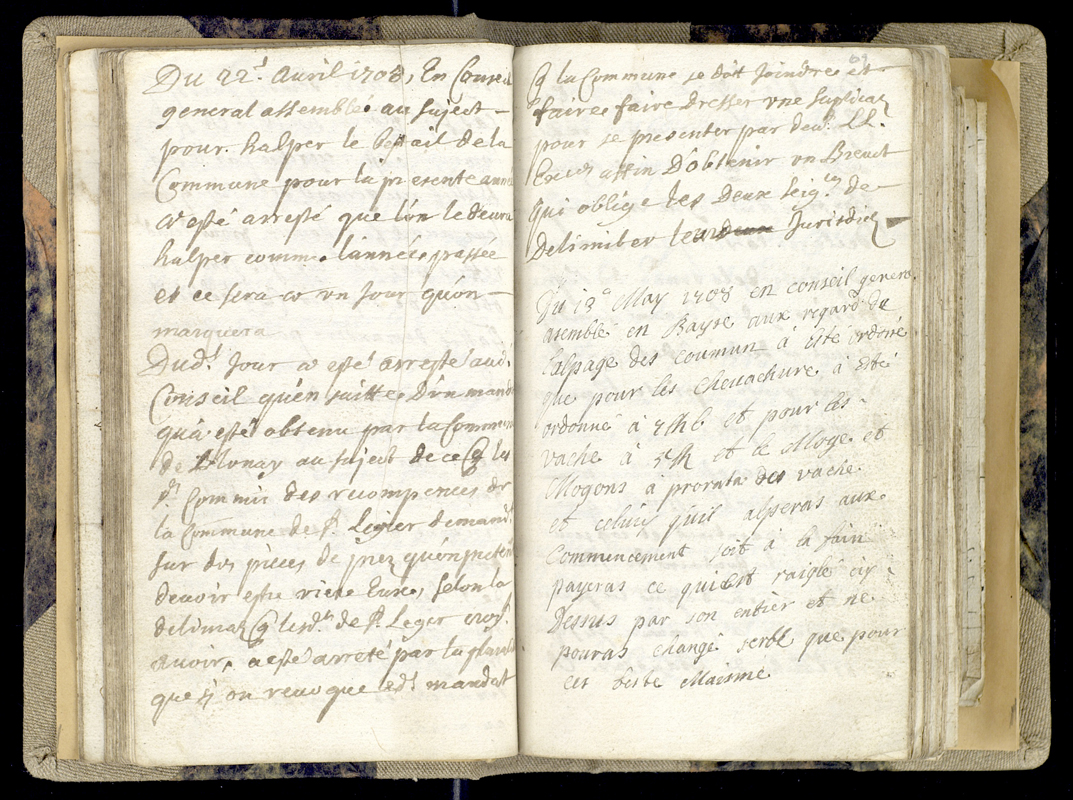 Du 22.d Avril 1708, En Conseil
general assemblé au sujest
pour halper le bestail de la
Commune pour la presente année
a esté arresté que l'on le deura
halper comme l'année passée
et ce sera a un Jour qu'on
marquera
Dud.t Jour a esté arresté aud.
Conseil qu'en suitte d'un mand
qu'a esté obtenu par la Commun
de au sujest de ce q les
Commis des recompences de
la Commune de St. Legier demand.
sur des pieces de prez qu'on
devoir estre riere Eux, selon la
delimaõn q les d.ts de St. Leger
avoir, a esté arreté par la
que si on revoque led.t mandat
q la Commune se doit Joindre et
faire faire dresser une suplicaõn
pour se presenter par dev.t LL.
Exces affin D'obtenir un Brevet
qui oblige les Deux seig.rs de
Delimiter leur Jurisdicõn
Du 13.e May 1708 en conseil gener.
asemblé en Bayse aux regard du
l'alpage des coumun à été ordoné
que pour les Chevachure à esté
ordonné à et pour les
vache à et le Moge et
Mogons à prorata des vache
et celuiy qu'il alperas aux
Commencement soit à la fain
payeras ce qui est raiglé cy
Dessus par son entier et ne
pouras changé serbé que pour
cet beste Maisme